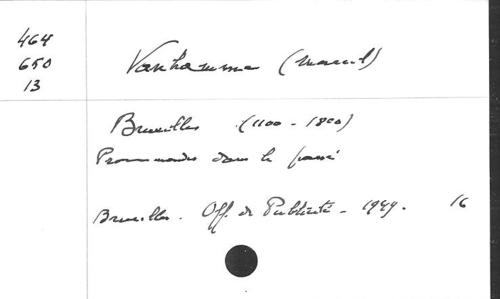 464
650
13
Vanhamme (Marcel)
Bruxelles (1100 - 1800)
Promenades dans le passé
Bruxelles. Off. de Publicité - 1949. 16